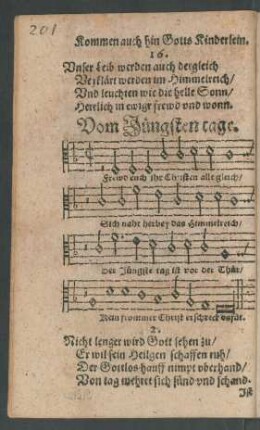 201
Kommen auch hin Gotts Kinderlein.
16.
Vnser Leib werden auch dergleich
Verklärt werden im Himmelreich/
Vnd leuchten wie die helle Sonn/
Herrlich in ewigr frewd vnd wonn.
Vom Jüngsten tage.
Frewd euch jhr Christen alle gleich/
Sich naht herbey das Himmelreich/
Der Jüngste tag ist vor der Thür/
Kein frommer Christ erschreck dafür.
2.
Nicht lenger wird Gott sehen zu/
Er wil sein Heilgen schaffen ruh/
Der Gottlos hauff nimpt vberhand/
Von tag mehret sich sünd vnd schand.
Ist